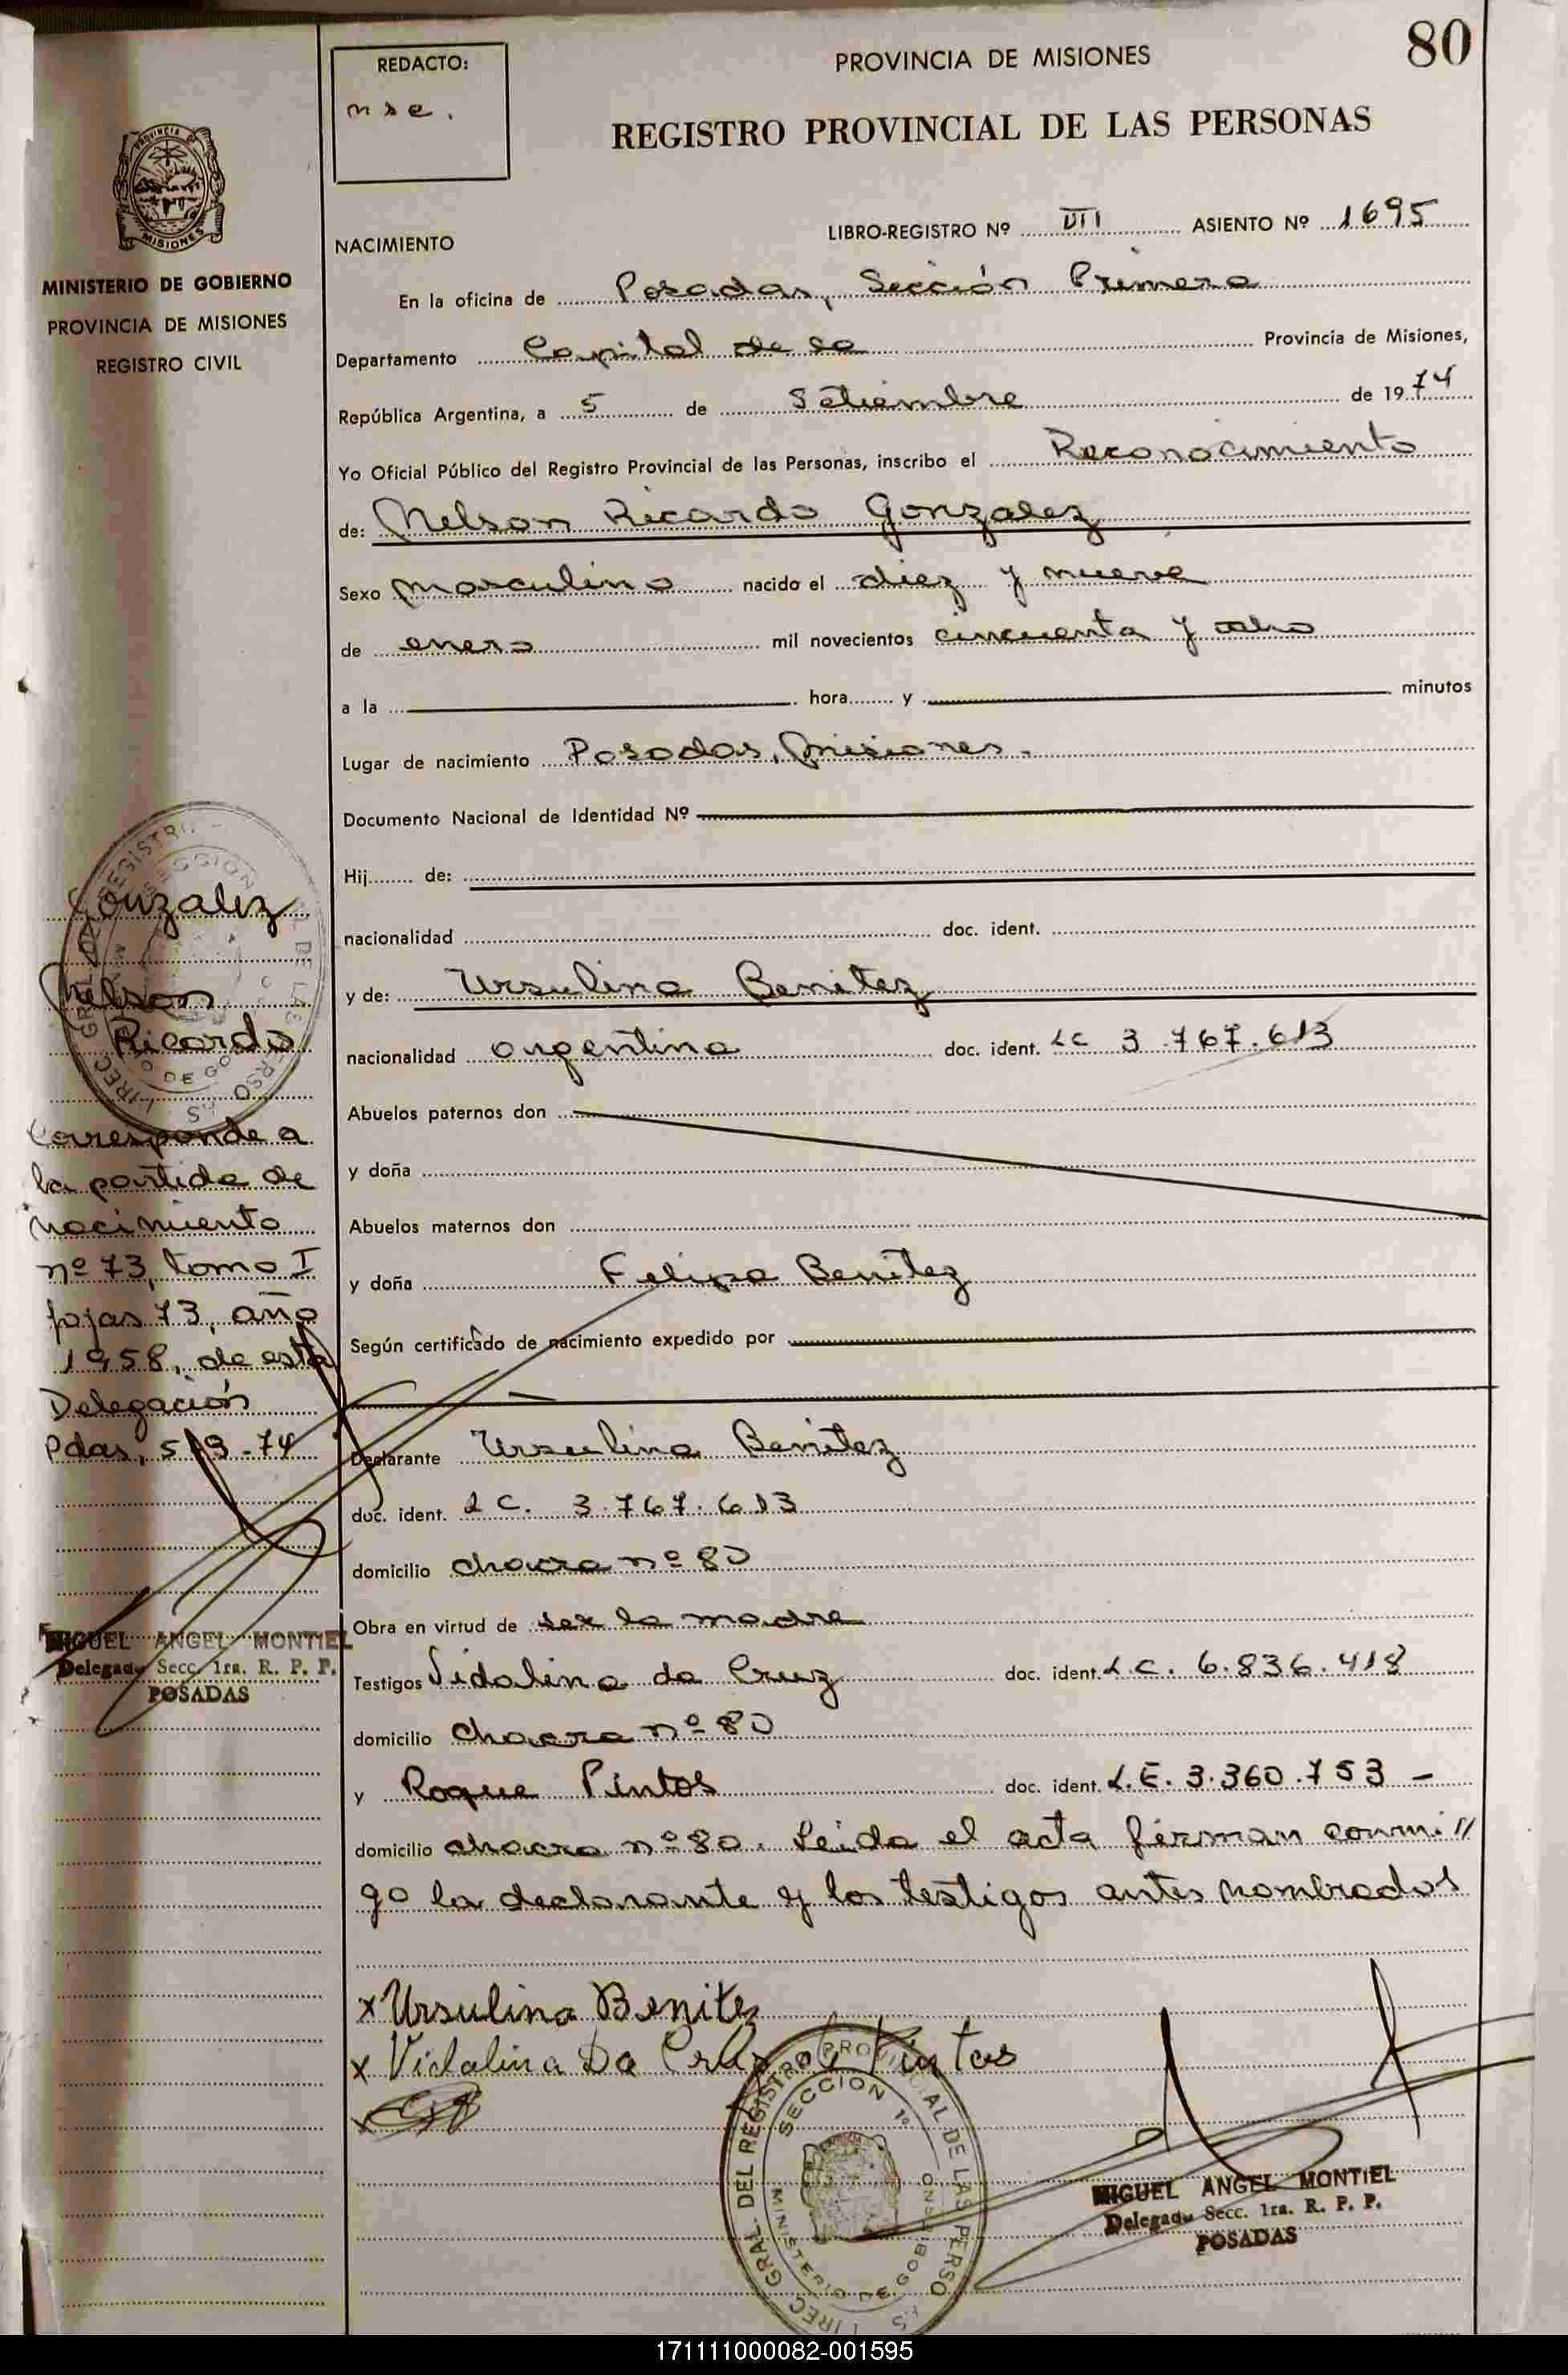 80
REDACTO:
m s e.
PROVINCIA DE MISIONES
REGISTRO PROVINCIAL DE LAS PERSONAS
PROVINCIA DE MISIONES
MINISTERIO DE GOBIERNO
PROVINCIA DE MISIONES
REGISTRO CIVIL
NACIMIENTO
LIBRO-REGISTRO Nº VII ASIENTO Nº 1695
En la oficina de Posadas, Sección Primera
Departamento Capital de la Provincia de Misiones,
República Argentina, a 5 de Setiembre de 1974
Yo Oficial Público del Registro Provincial de las Personas, inscribo el Reconocimiento
de: Nelson Ricardo Gonzalez
Sexo masculino nacido el diez y nueve
de enero mil novecientos cincuenta y ocho
a la hora y minutos
Lugar de nacimiento Posadas, Misiones.
Documento Nacional de Identidad Nº
Hij de:
nacionalidad doc. ident.
y de: Ursulina Benitez
nacionalidad argentina doc. ident. LC 3.767.613
Abuelos paternos don
y doña
Abuelos maternos don
y doña Felipa Benitez
Según certificado de nacimiento expedido por
Declarante Ursulina Benitez
doc. ident. LC. 3.767.613
domicilio chacra nº 80
Obra en virtud de ser la madre
Testigos Vidalina da Cruz doc. ident. L.C. 6.836.418
domicilio chacra nº 80
y Roque Pintos doc. ident. L.E. 3.360.753 –
domicilio chacra nº 80. Leida el acta firman conmi//
go la declarante y los testigos antes nombrados
x Ursulina Benitez
x Vidalina Da Cruz de Pintos
x
GRAL. DEL REGISTRO PROVINCIAL DE LAS PERSO
SECCION 1º
MINISTERIO DE GOBIERNO
MIGUEL ANGEL MONTIEL
Delegado Secc. 1ra. R. P. P.
POSADAS
Gonzalez
Nelson
Ricardo
Corresponde a
la partida de
nacimiento
nº 73, tomo I
fojas 73, año
1958, de esta
Delegación
Pdas, 5/9-74
MIGUEL ANGEL MONTIEL
Delegado Secc. 1ra. R. P. P.
POSADAS
171111000082-001595